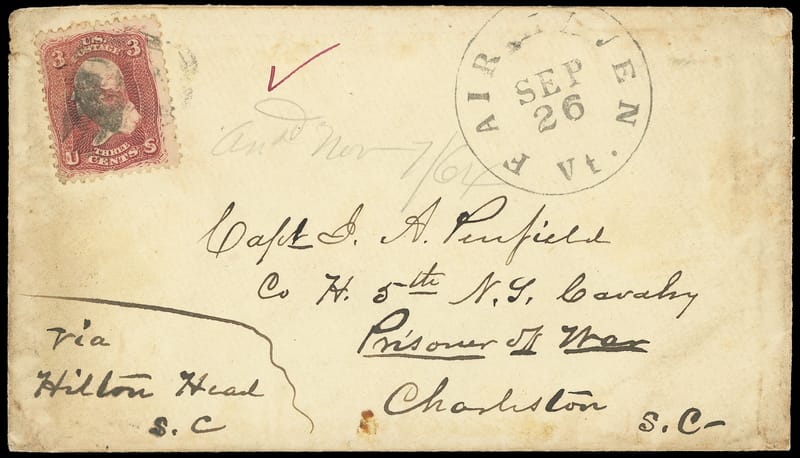 3 U.S. POSTAGE 3
U THREE CENTS S
FAIR HAVEN
SEP
26
Vt.
ansd Nov 7/64
Capt J. A. Penfield
Co H. 5th N.Y. Cavalry
Prisoner of War
Charleston
S.C-
via
Hilton Head
S.C